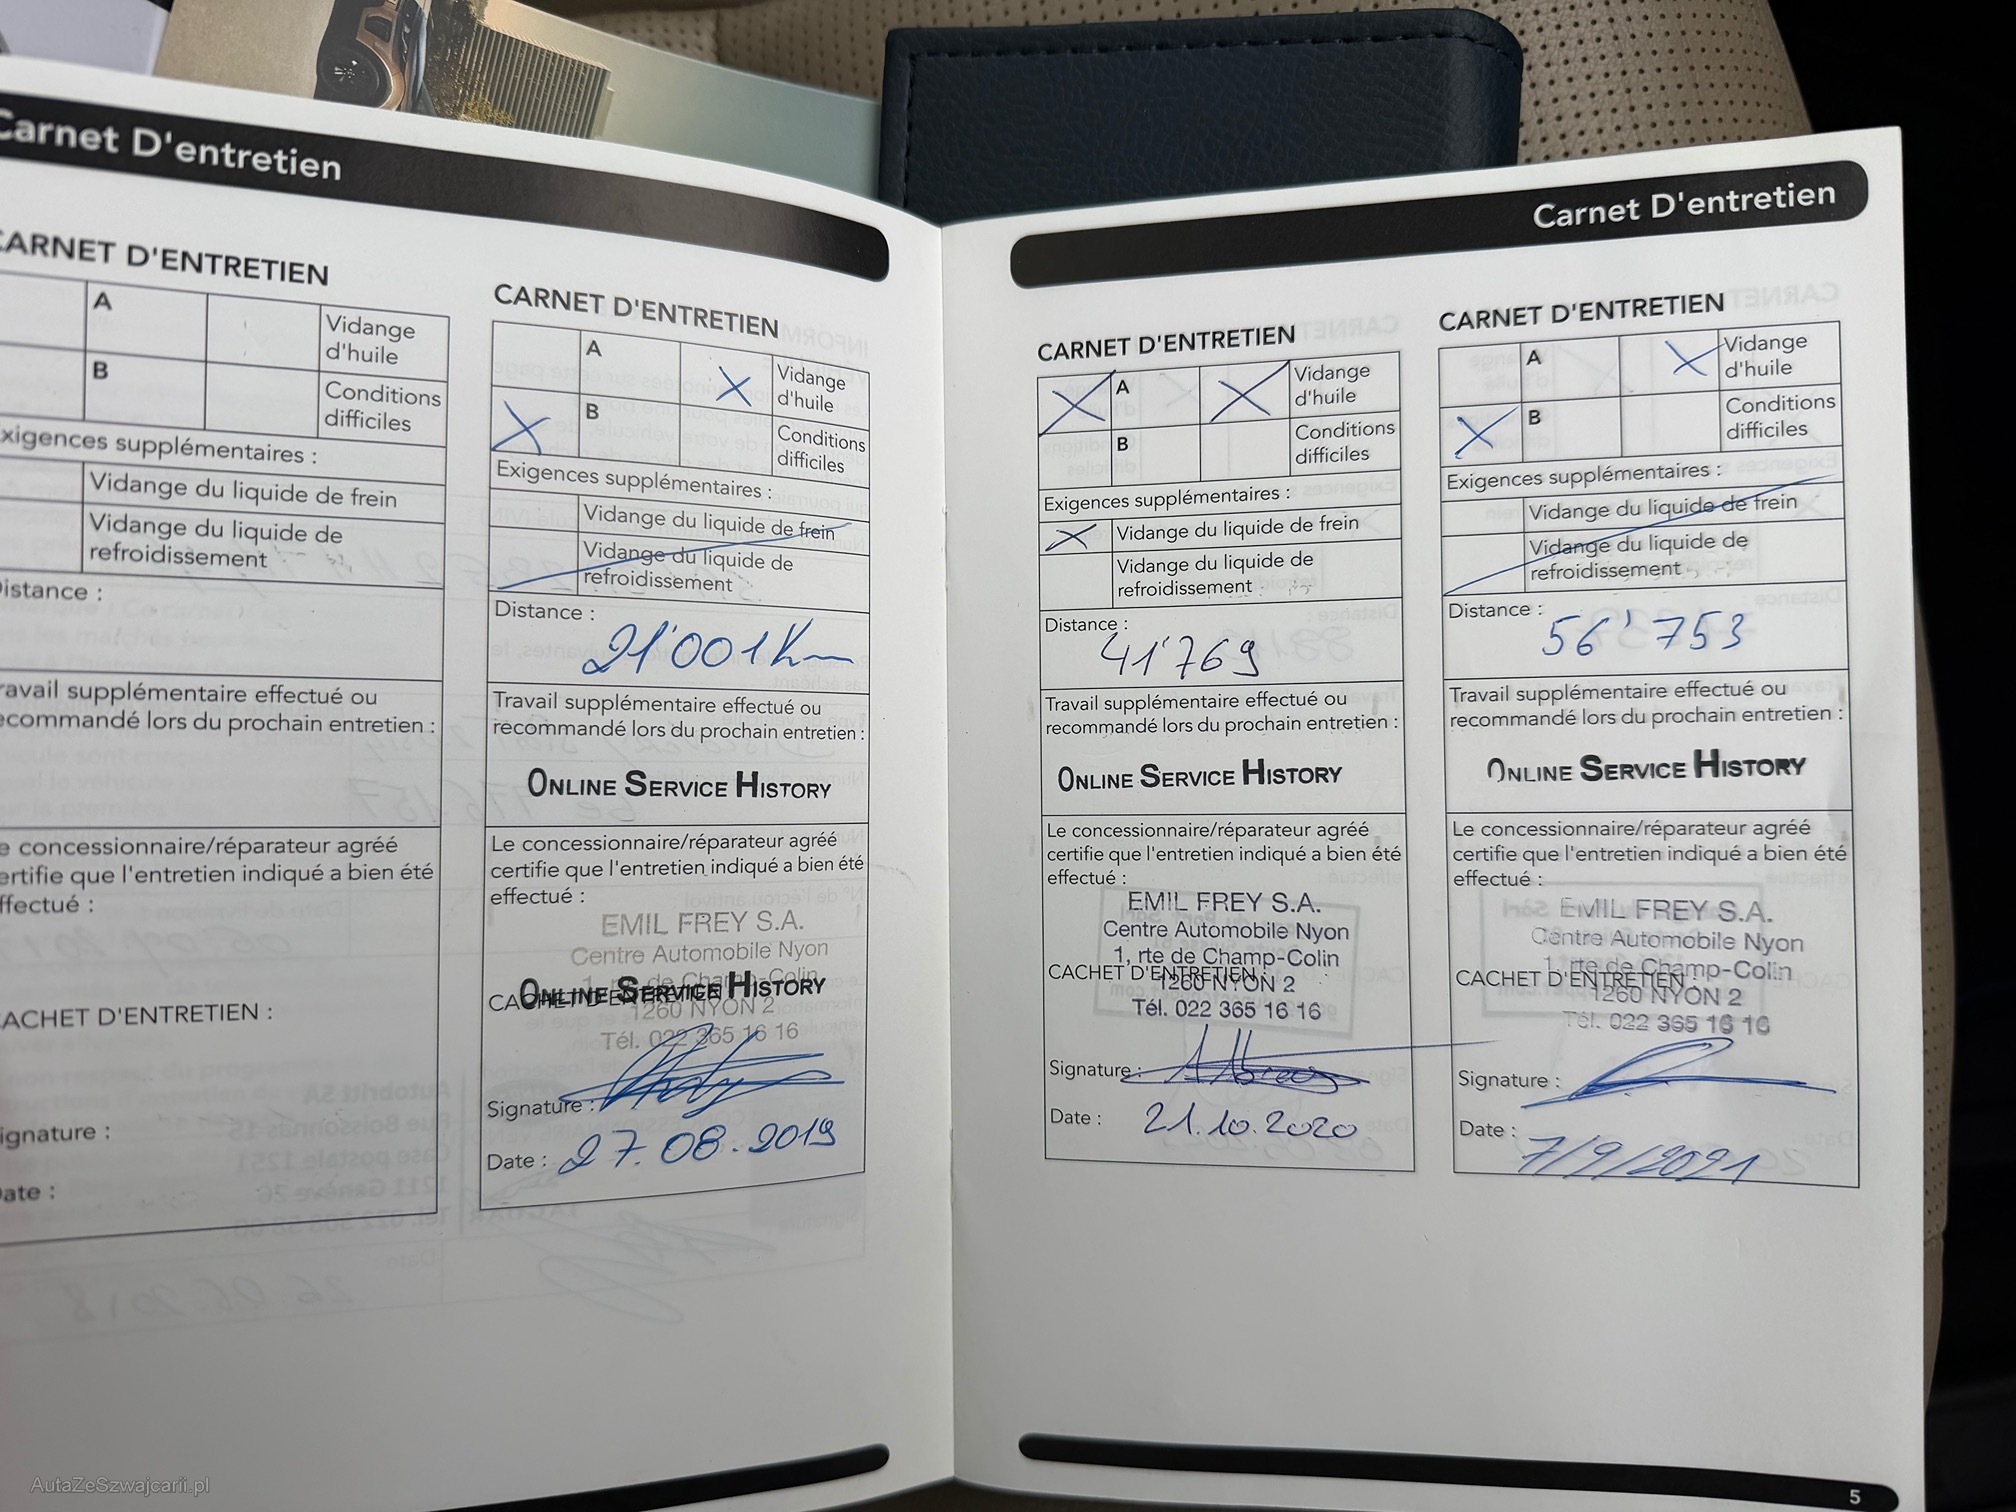 Carnet D'entretien
CARNET D'ENTRETIEN
A
Vidange
d'huile
B
Conditions
difficiles
xigences supplémentaires :
Vidange du liquide de frein
Vidange du liquide de
refroidissement
istance :
ravail supplémentaire effectué ou
ecommandé lors du prochain entretien :
e concessionnaire/réparateur agréé
ertifie que l'entretien indiqué a bien été
ffectué :
ACHET D'ENTRETIEN :
ignature :
ate :
CARNET D'ENTRETIEN
A
X
Vidange
d'huile
X
B
Conditions
difficiles
Exigences supplémentaires :
Vidange du liquide de frein
Vidange du liquide de
refroidissement
Distance :
21'001 Km
Travail supplémentaire effectué ou
recommandé lors du prochain entretien :
ONLINE SERVICE HISTORY
Le concessionnaire/réparateur agréé
certifie que l'entretien indiqué a bien été
effectué :
EMIL FREY S.A.
Centre Automobile Nyon
1, rte de Champ-Colin
CACHET D'ENTRETIEN :
ONLINE SERVICE HISTORY
1260 NYON 2
Tél. 022 365 16 16
Signature :
Date : 27.08.2019
Carnet D'entretien
CARNET D'ENTRETIEN
X
A
X
Vidange
d'huile
B
Conditions
difficiles
Exigences supplémentaires :
X
Vidange du liquide de frein
Vidange du liquide de
refroidissement
Distance :
41'769
Travail supplémentaire effectué ou
recommandé lors du prochain entretien :
ONLINE SERVICE HISTORY
Le concessionnaire/réparateur agréé
certifie que l'entretien indiqué a bien été
effectué :
EMIL FREY S.A.
Centre Automobile Nyon
1, rte de Champ-Colin
CACHET D'ENTRETIEN :
1260 NYON 2
Tél. 022 365 16 16
Signature :
Date : 21.10.2020
CARNET D'ENTRETIEN
A
X
Vidange
d'huile
X
B
Conditions
difficiles
Exigences supplémentaires :
Vidange du liquide de frein
Vidange du liquide de
refroidissement
Distance :
56'753
Travail supplémentaire effectué ou
recommandé lors du prochain entretien :
ONLINE SERVICE HISTORY
Le concessionnaire/réparateur agréé
certifie que l'entretien indiqué a bien été
effectué :
EMIL FREY S.A.
Centre Automobile Nyon
1, rte de Champ-Colin
CACHET D'ENTRETIEN :
1260 NYON 2
Tél. 022 365 16 16
Signature :
Date : 7/9/2021
5
AutaZeSzwajcarii.pl